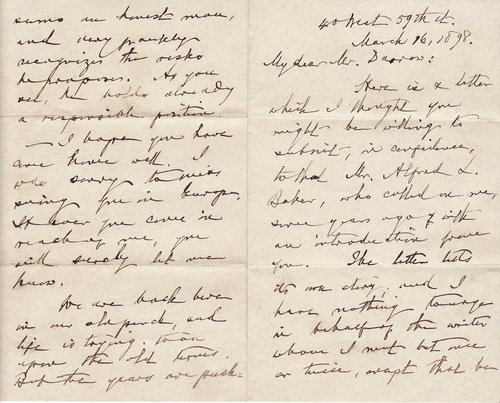 40 West 59th St.
March 16, 1898.
My dear Mr. Darrow:
Here is a letter
which I thought you
might be willing to
submit, in confidence,
to that Mr. Alfred L.
Baker, who called on me,
some years ago, with
an introduction from
you. The letter tells
its own story, and I
have nothing to urge
in behalf of the writer
whom I met but once
or twice, except that he
seems an honest man,
and very promptly
recognizes the risks
he proposes. As you
see, he holds already
a responsible position.
— I hope you have
come home well. I
was sorry to miss
seeing you in Europe.
If ever you come in
reach of me, you
will surely let me
know.
We are back here
in our
life is trying
upon the old
But the years are push-